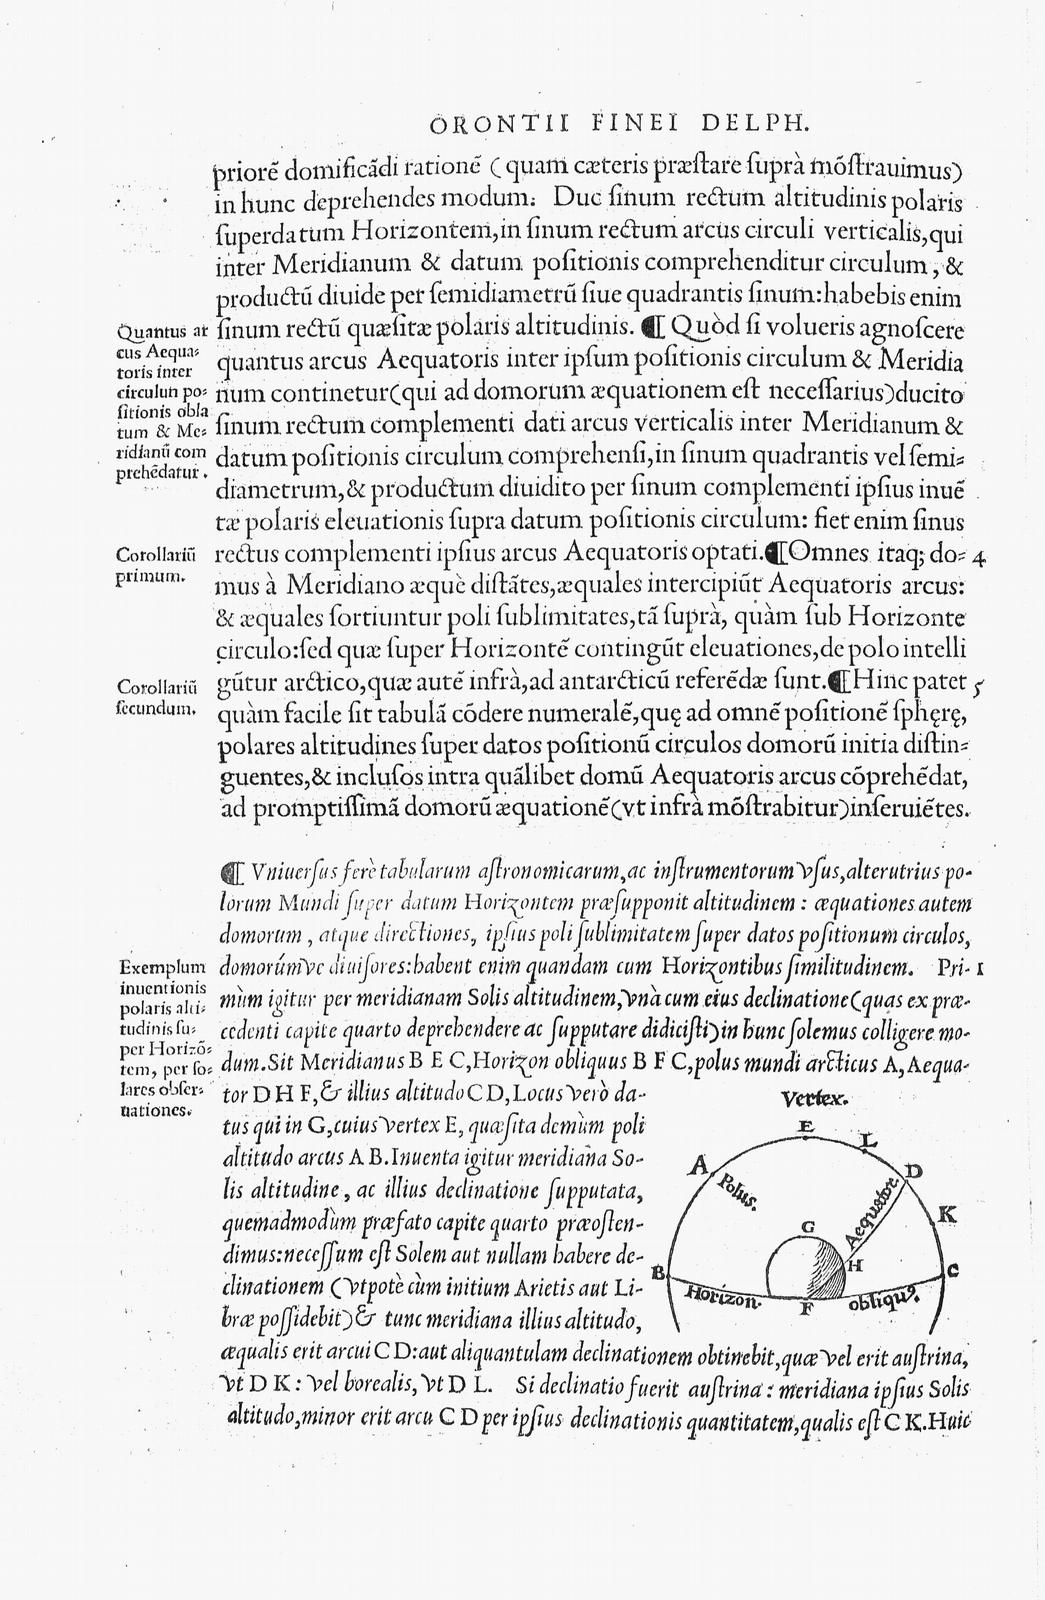 ORONTII FINEI DELPH.
priorē domificādi rationē (quam cæteris præſtare ſuprà mōſtrauimus)
in hunc deprehendes modum. Duc ſinum rectum altitudinis polaris
ſuper datum Horizontem, in ſinum rectum arcus circuli verticalis, qui
inter Meridianum & datum poſitionis comprehenditur circulum, &
productū diuide per ſemidiametrū ſiue quadrantis ſinum: habebis enim
ſinum rectū quæſitæ polaris altitudinis. ¶ Quòd ſi volueris agnoſcere
quantus arcus Aequatoris inter ipſum poſitionis circulum & Meridia
num continetur (qui ad domorum æquationem eſt neceſſarius) ducito
ſinum rectum complementi dati arcus verticalis inter Meridianum &
datum poſitionis circulum comprehenſi, in ſinum quadrantis vel ſemi=
diametrum, & productum diuidito per ſinum complementi ipſius inuē
tæ polaris eleuationis ſupra datum poſitionis circulum: fiet enim ſinus
rectus complementi ipſius arcus Aequatoris optati. ¶ Omnes itaq; do= 4
mus à Meridiano æquè diſtātes, æquales intercipiūt Aequatoris arcus:
& æquales ſortiuntur poli ſublimitates, tā ſuprà, quàm ſub Horizonte
circulo: ſed quæ ſuper Horizontē contingūt eleuationes, de polo intelli
gūtur arctico, quæ autē infrà, ad antarcticū referēdæ ſunt. ¶ Hinc patet 5
quàm facile ſit tabulā cōdere numeralē, quę ad omnē poſitionē ſphęrę,
polares altitudines ſuper datos poſitionū circulos domorū initia diſtin=
guentes, & incluſos intra quālibet domū Aequatoris arcus cōprehēdat,
ad promptiſſimā domorū æquationē (vt infrà mōſtrabitur) inſeruiētes.
Quantus ar
cus Aequa=
toris inter
circulun po=
ſitionis obla
tum & Me=
ridianū com
prehēdatur.
Corollariū
primum.
Corollariū
ſecundum.
¶ Vniuerſus ferè tabularum aſtronomicarum, ac inſtrumentorum vſus, alterutrius po-
lorum Mundi ſuper datum Horizontem præſupponit altitudinem: æquationes autem
domorum, atque directiones, ipſius poli ſublimitatem ſuper datos poſitionum circulos,
domorúmve diuiſores: habent enim quandam cum Horizontibus ſimilitudinem. Pri- 1
mùm igitur per meridianam Solis altitudinem, vnà cum eius declinatione (quas ex præ-
cedenti capite quarto deprehendere ac ſupputare didiciſti) in hunc ſolemus colligere mo-
dum. Sit Meridianus B E C, Horizon obliquus B F C, polus mundi arcticus A, Aequa-
tor D H F, & illius altitudo C D, Locus verò da-
tus qui in G, cuius vertex E, quæſita demùm poli
altitudo arcus A B. Inuenta igitur meridiana So-
lis altitudine, ac illius declinatione ſupputata,
quemadmodùm præfato capite quarto præoſten-
dimus: neceſſum eſt Solem aut nullam habere de-
clinationem (vtpotè cùm initium Arietis aut Li-
bræ poſſidebit) & tunc meridiana illius altitudo,
æqualis erit arcui C D: aut aliquantulam declinationem obtinebit, quæ vel erit auſtrina,
vt D K: vel borealis, vt D L. Si declinatio fuerit auſtrina: meridiana ipſius Solis
altitudo, minor erit arcu C D per ipſius declinationis quantitatem, qualis eſt C K. Huic
Exemplum
inuentionis
polaris alti=
tudinis ſu=
per Horizō=
tem, per ſo=
lares obſer=
uationes.
Vertex.
E
L
A
D
Polus.
Aequator
K
G
B
H
C
Horizon.
F
obliqu9.